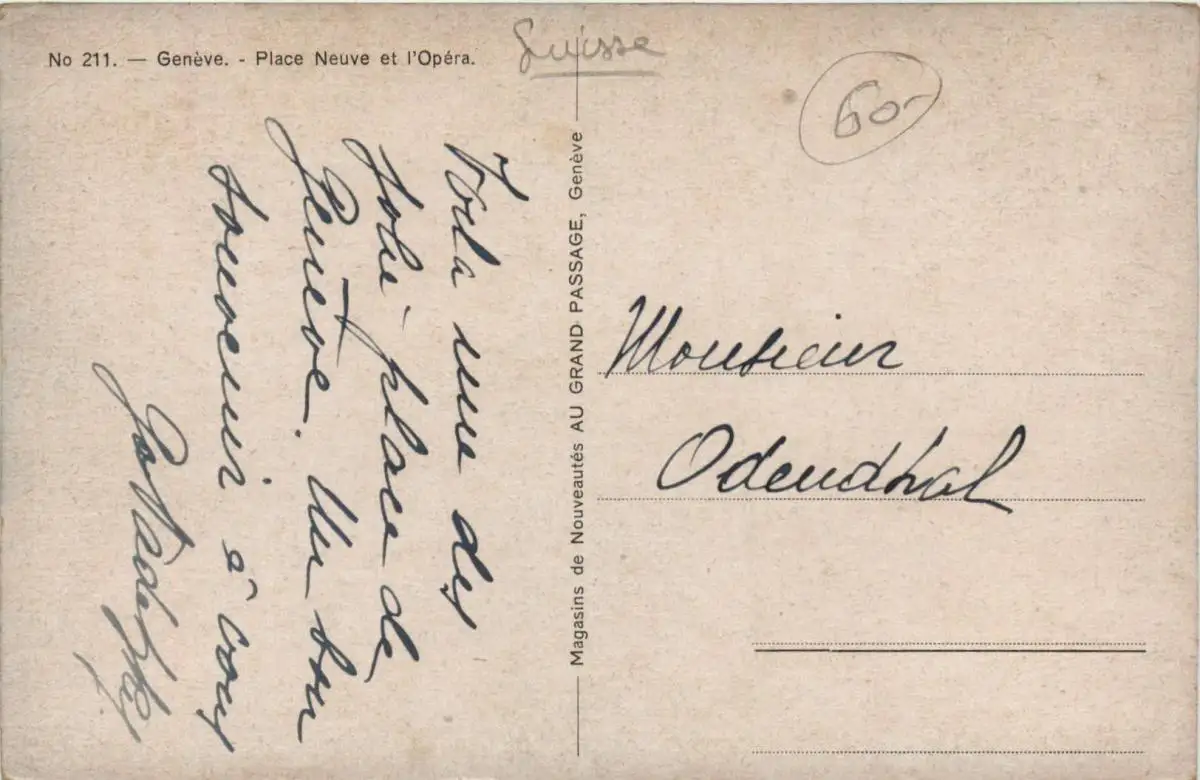 No 211. — Genève. - Place Neuve et l'Opéra.
Suisse
60-
Voila une des
jolie place de
Genève. Un bon
souvenir à vous
Magasins de Nouveautés AU GRAND PASSAGE, Genève
Monsieur
Odendhal